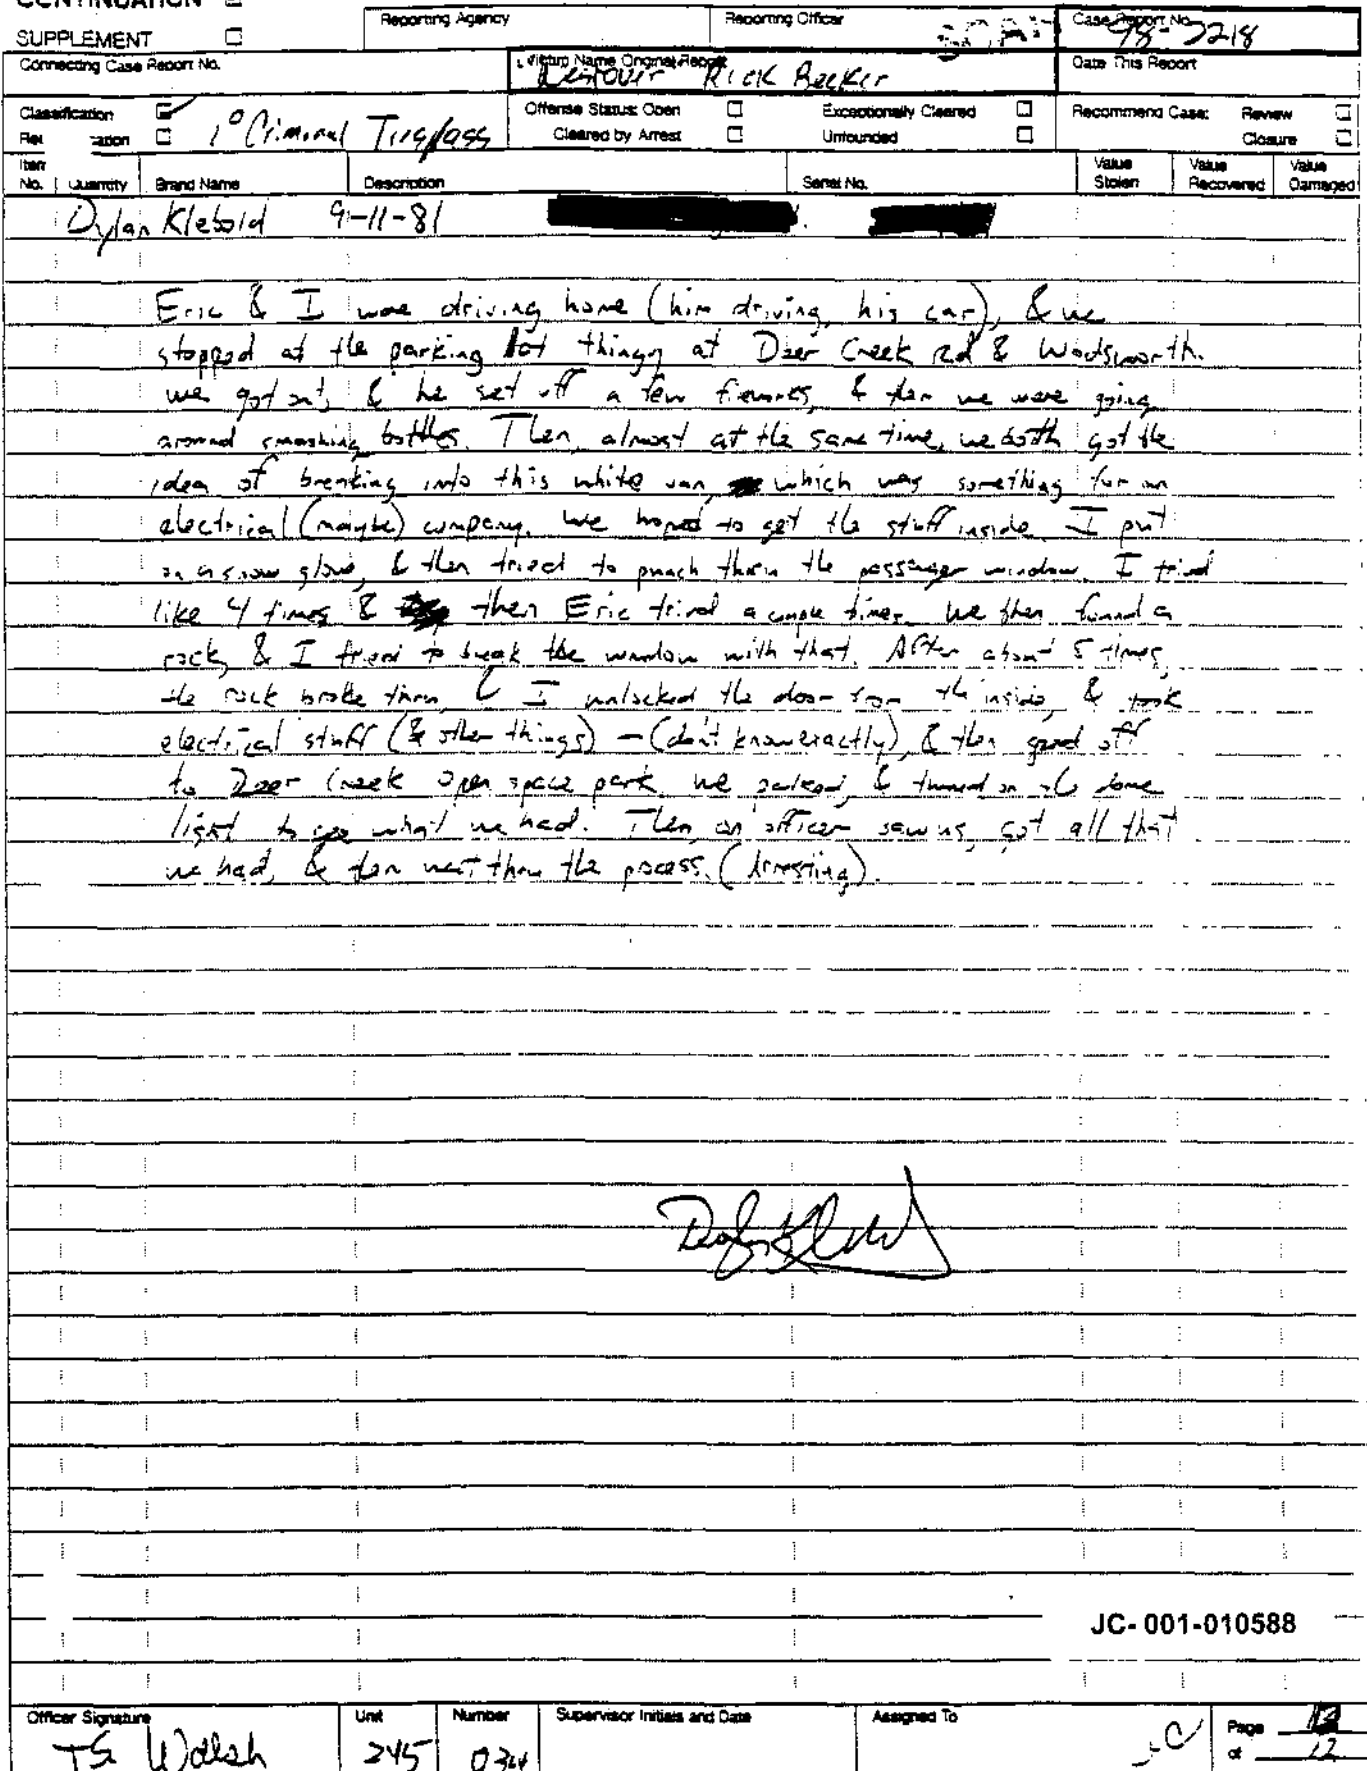 CONTINUATION
SUPPLEMENT
Reporting Agency
Reporting Officer
Case Report No.
98-2218
Connecting Case Report No.
Victim Name Original Report
Rick Becker
Date This Report
Classification
1° Criminal Trespass
Offense Status: Open
Cleared by Arrest
Exceptionally Cleared
Unfounded
Recommend Case: Review
Closure
Item No.
Quantity
Brand Name
Description
Serial No.
Value Stolen
Value Recovered
Value Damaged
Dylan Klebold 9-11-81
Eric & I were driving home (him driving, his car), & we
stopped at the parking lot thingy at Deer Creek Rd & Wadsworth.
we got out, & he set off a few fireworks, & then we were going
around smashing bottles. Then, almost at the same time, we both got the
idea of breaking into this white van, which was something for an
electrical (maybe) company. We hoped to get the stuff inside. I put
on a snow glove, & then tried to punch thru the passenger window. I tried
like 4 times & then Eric tried a couple times. We then found a
rock, & I tried to break the window with that. After about 5 times,
the rock broke thru, & I unlocked the door from the inside, & took
electrical stuff (& other things) – (don't know exactly), & then off
to Deer Creek open space park. We parked, & turned on the dome
light to see what we had. Then an officer saw us, got all that
we had, & then went thru the process. (Arresting).
Dylan Klebold
JC-001-010588
Officer Signature
TS Walsh
Unit
245
Number
034
Supervisor Initials and Date
Assigned To
JC
Page
of 12